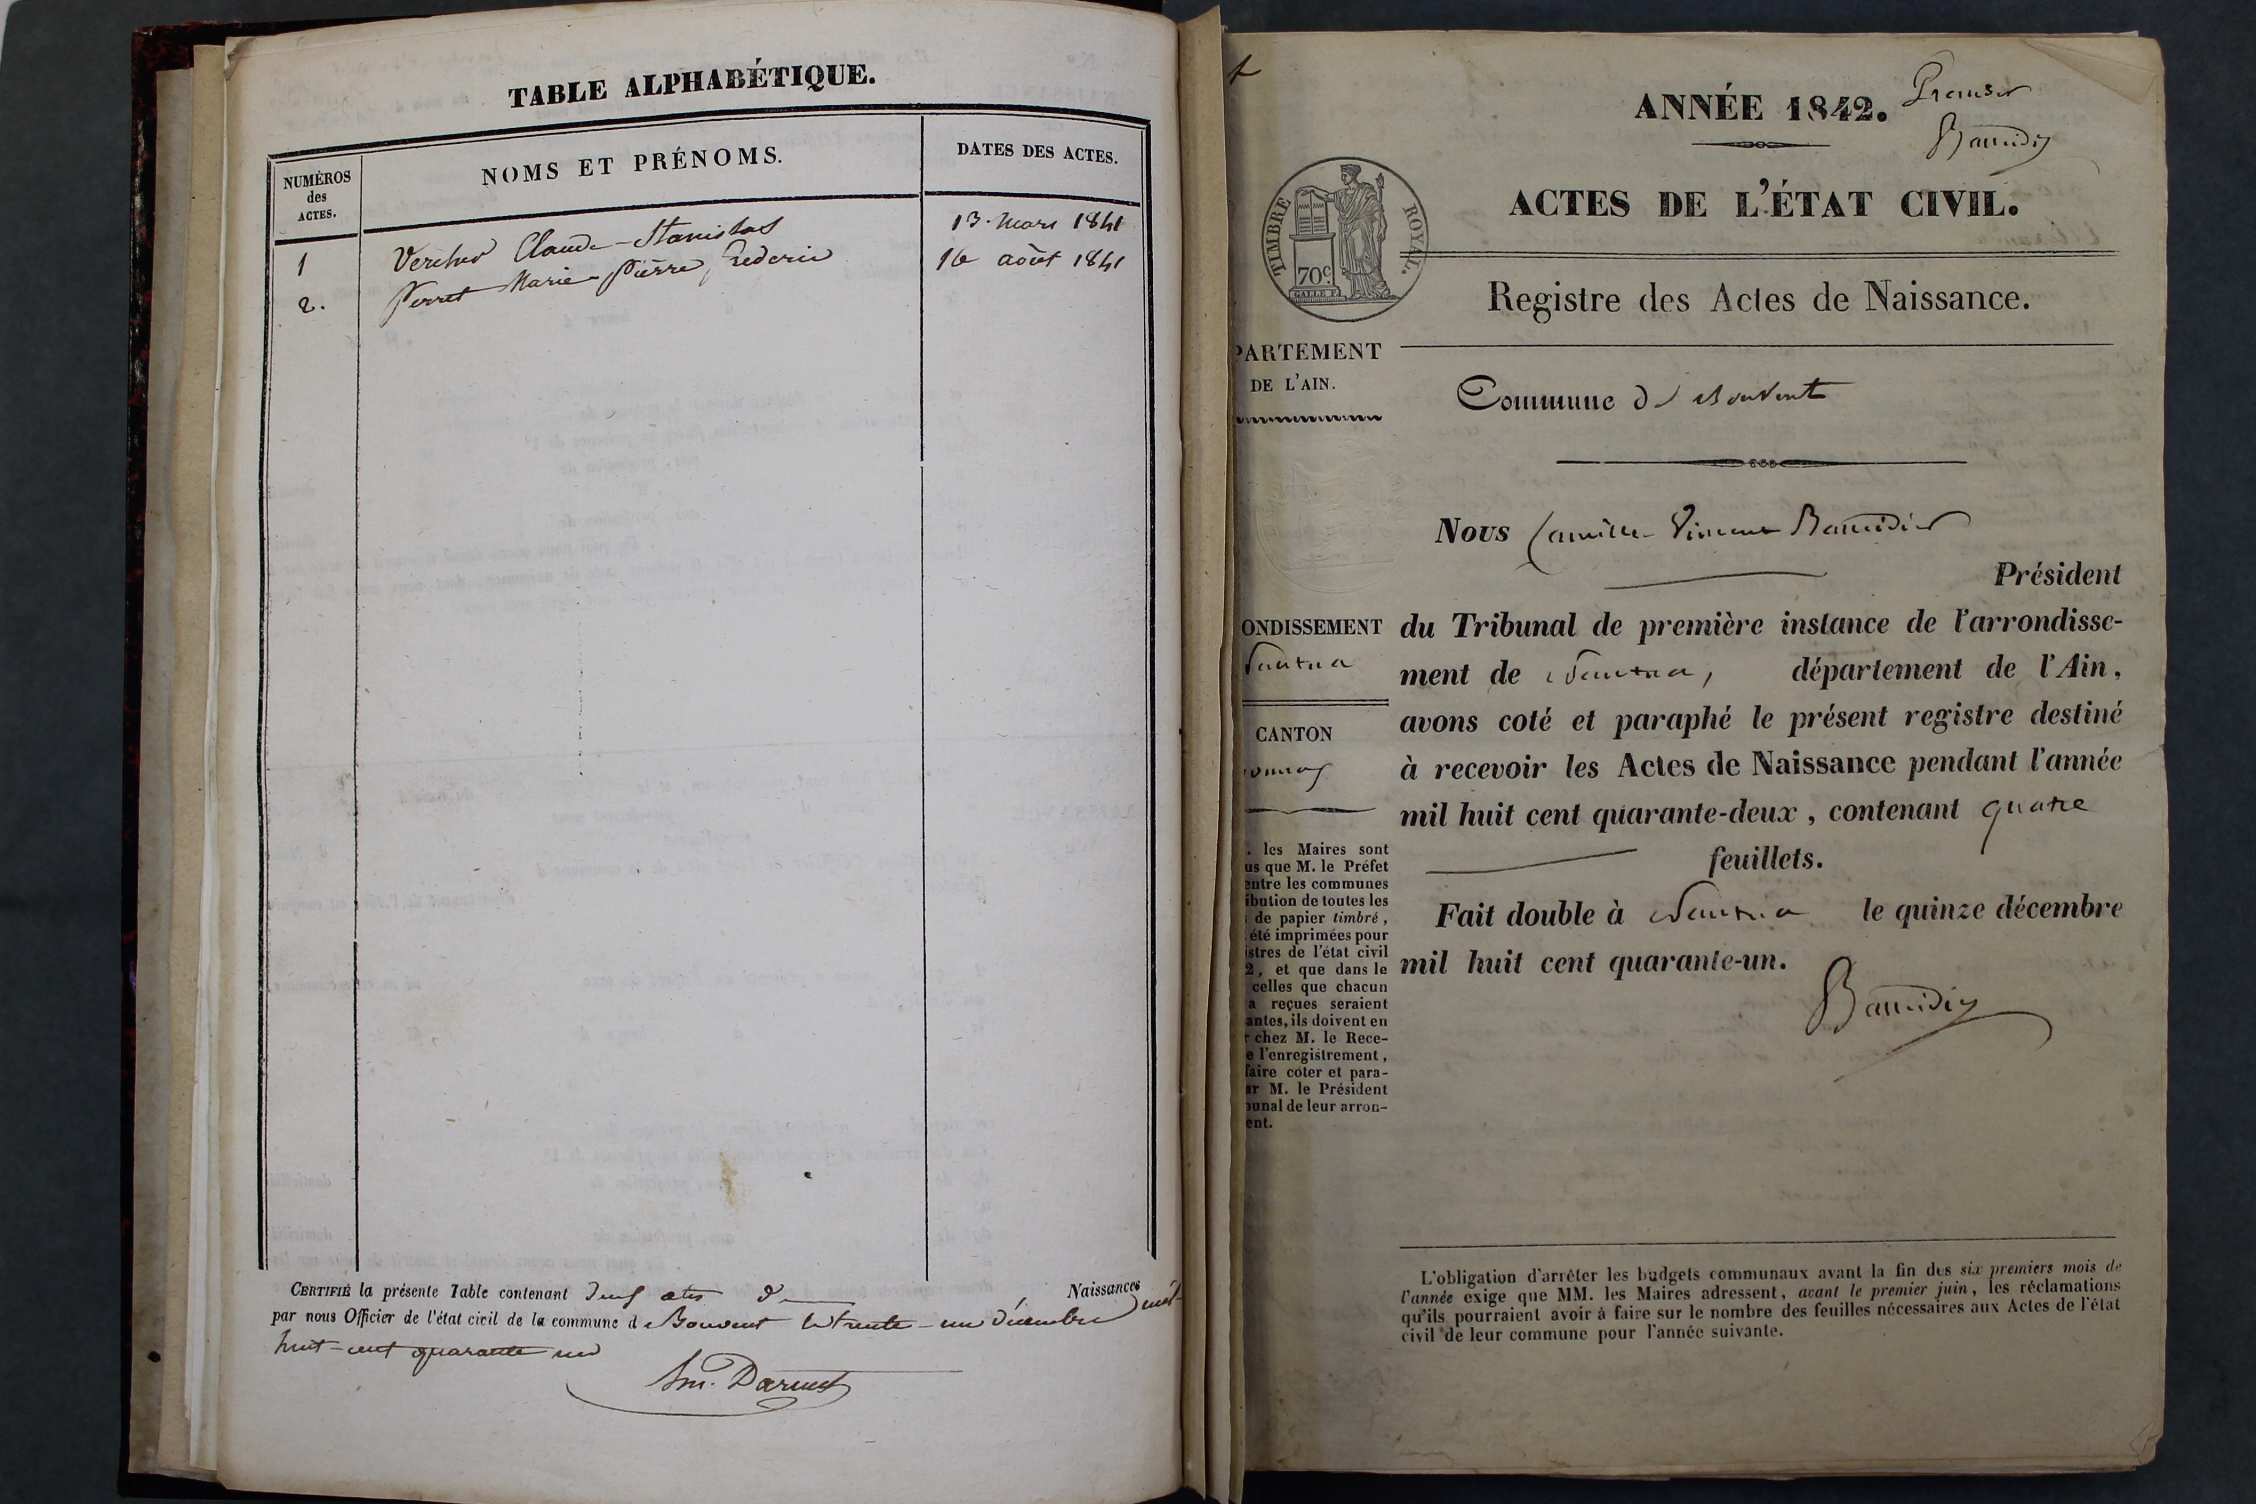 TABLE ALPHABÉTIQUE.
NUMÉROS
des
ACTES.
NOMS ET PRÉNOMS.
DATES DES ACTES.
1 Claude-Stanislas 13. Mars 1841
2. Perret Marie-Pierre Frederic 16 août 1841
CERTIFIÉ la présente Table contenant Deux actes de Naissances
par nous Officier de l'état civil de la commune d Bouvent le trente-un décembre mil-
huit-cent quarante un
ANNÉE 1842.
Premier
ACTES DE L'ÉTAT CIVIL.
TIMBRE ROYAL.
70c.
Registre des Actes de Naissance.
PARTEMENT
DE L'AIN.
Commune de Bouvent
Nous Camille Vincent
Président
ONDISSEMENT
Nantua
du Tribunal de première instance de l'arrondisse-
ment de Nantua, département de l'Ain,
CANTON
onnay
avons coté et paraphé le présent registre destiné
à recevoir les Actes de Naissance pendant l'année
mil huit cent quarante-deux, contenant quatre
feuillets.
Fait double à Nantua le quinze décembre
mil huit cent quarante-un.
. les Maires sont
us que M. le Préfet
entre les communes
ibution de toutes les
de papier timbré,
été imprimées pour
istres de l'état civil
2, et que dans le
celles que chacun
a reçues seraient
antes, ils doivent en
r chez M. le Rece-
e l'enregistrement,
faire coter et para-
ar M. le Président
bunal de leur arron-
ent.
L'obligation d'arrêter les budgets communaux avant la fin des six premiers mois de
l'année exige que MM. les Maires adressent, avant le premier juin, les réclamations
qu'ils pourraient avoir à faire sur le nombre des feuilles nécessaires aux Actes de l'état
civil de leur commune pour l'année suivante.